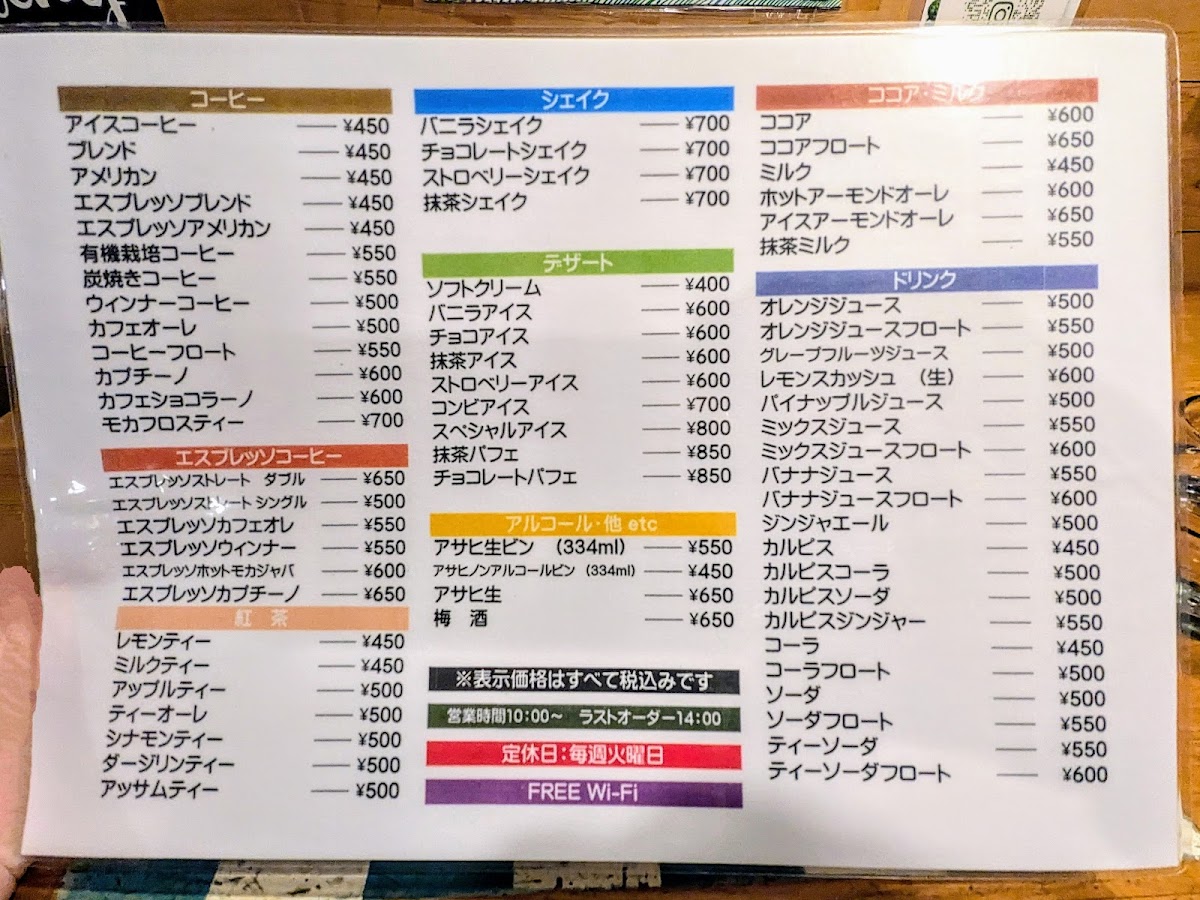 コーヒー
アイスコーヒー ¥450
ブレンド ¥450
アメリカン ¥450
エスプレッソブレンド ¥450
エスプレッソアメリカン ¥450
有機栽培コーヒー ¥550
炭焼きコーヒー ¥550
ウィンナーコーヒー ¥500
カフェオーレ ¥500
コーヒーフロート ¥550
カプチーノ ¥600
カフェショコラーノ ¥600
モカフロスティー ¥700
エスプレッソコーヒー
エスプレッソストレート ダブル ¥650
エスプレッソストレート シングル ¥500
エスプレッソカフェオレ ¥550
エスプレッソウィンナー ¥550
エスプレッソホットモカジャバ ¥600
エスプレッソカプチーノ ¥650
紅 茶
レモンティー ¥450
ミルクティー ¥450
アップルティー ¥500
ティーオーレ ¥500
シナモンティー ¥500
ダージリンティー ¥500
アッサムティー ¥500
シェイク
バニラシェイク ¥700
チョコレートシェイク ¥700
ストロベリーシェイク ¥700
抹茶シェイク ¥700
デザート
ソフトクリーム ¥400
バニラアイス ¥600
チョコアイス ¥600
抹茶アイス ¥600
ストロベリーアイス ¥600
コンビアイス ¥700
スペシャルアイス ¥800
抹茶パフェ ¥850
チョコレートパフェ ¥850
アルコール・他 etc
アサヒ生ビン (334ml) ¥550
アサヒノンアルコールビン (334ml) ¥450
アサヒ生 ¥650
梅 酒 ¥650
※表示価格はすべて税込みです
営業時間10:00～ ラストオーダー14:00
定休日:毎週火曜日
FREE Wi-Fi
ココア・ミルク
ココア ¥600
ココアフロート ¥650
ミルク ¥450
ホットアーモンドオーレ ¥600
アイスアーモンドオーレ ¥650
抹茶ミルク ¥550
ドリンク
オレンジジュース ¥500
オレンジジュースフロート ¥550
グレープフルーツジュース ¥500
レモンスカッシュ (生) ¥600
パイナップルジュース ¥500
ミックスジュース ¥550
ミックスジュースフロート ¥600
バナナジュース ¥550
バナナジュースフロート ¥600
ジンジャエール ¥500
カルピス ¥450
カルピスコーラ ¥500
カルピスソーダ ¥500
カルピスジンジャー ¥550
コーラ ¥450
コーラフロート ¥500
ソーダ ¥500
ソーダフロート ¥550
ティーソーダ ¥550
ティーソーダフロート ¥600